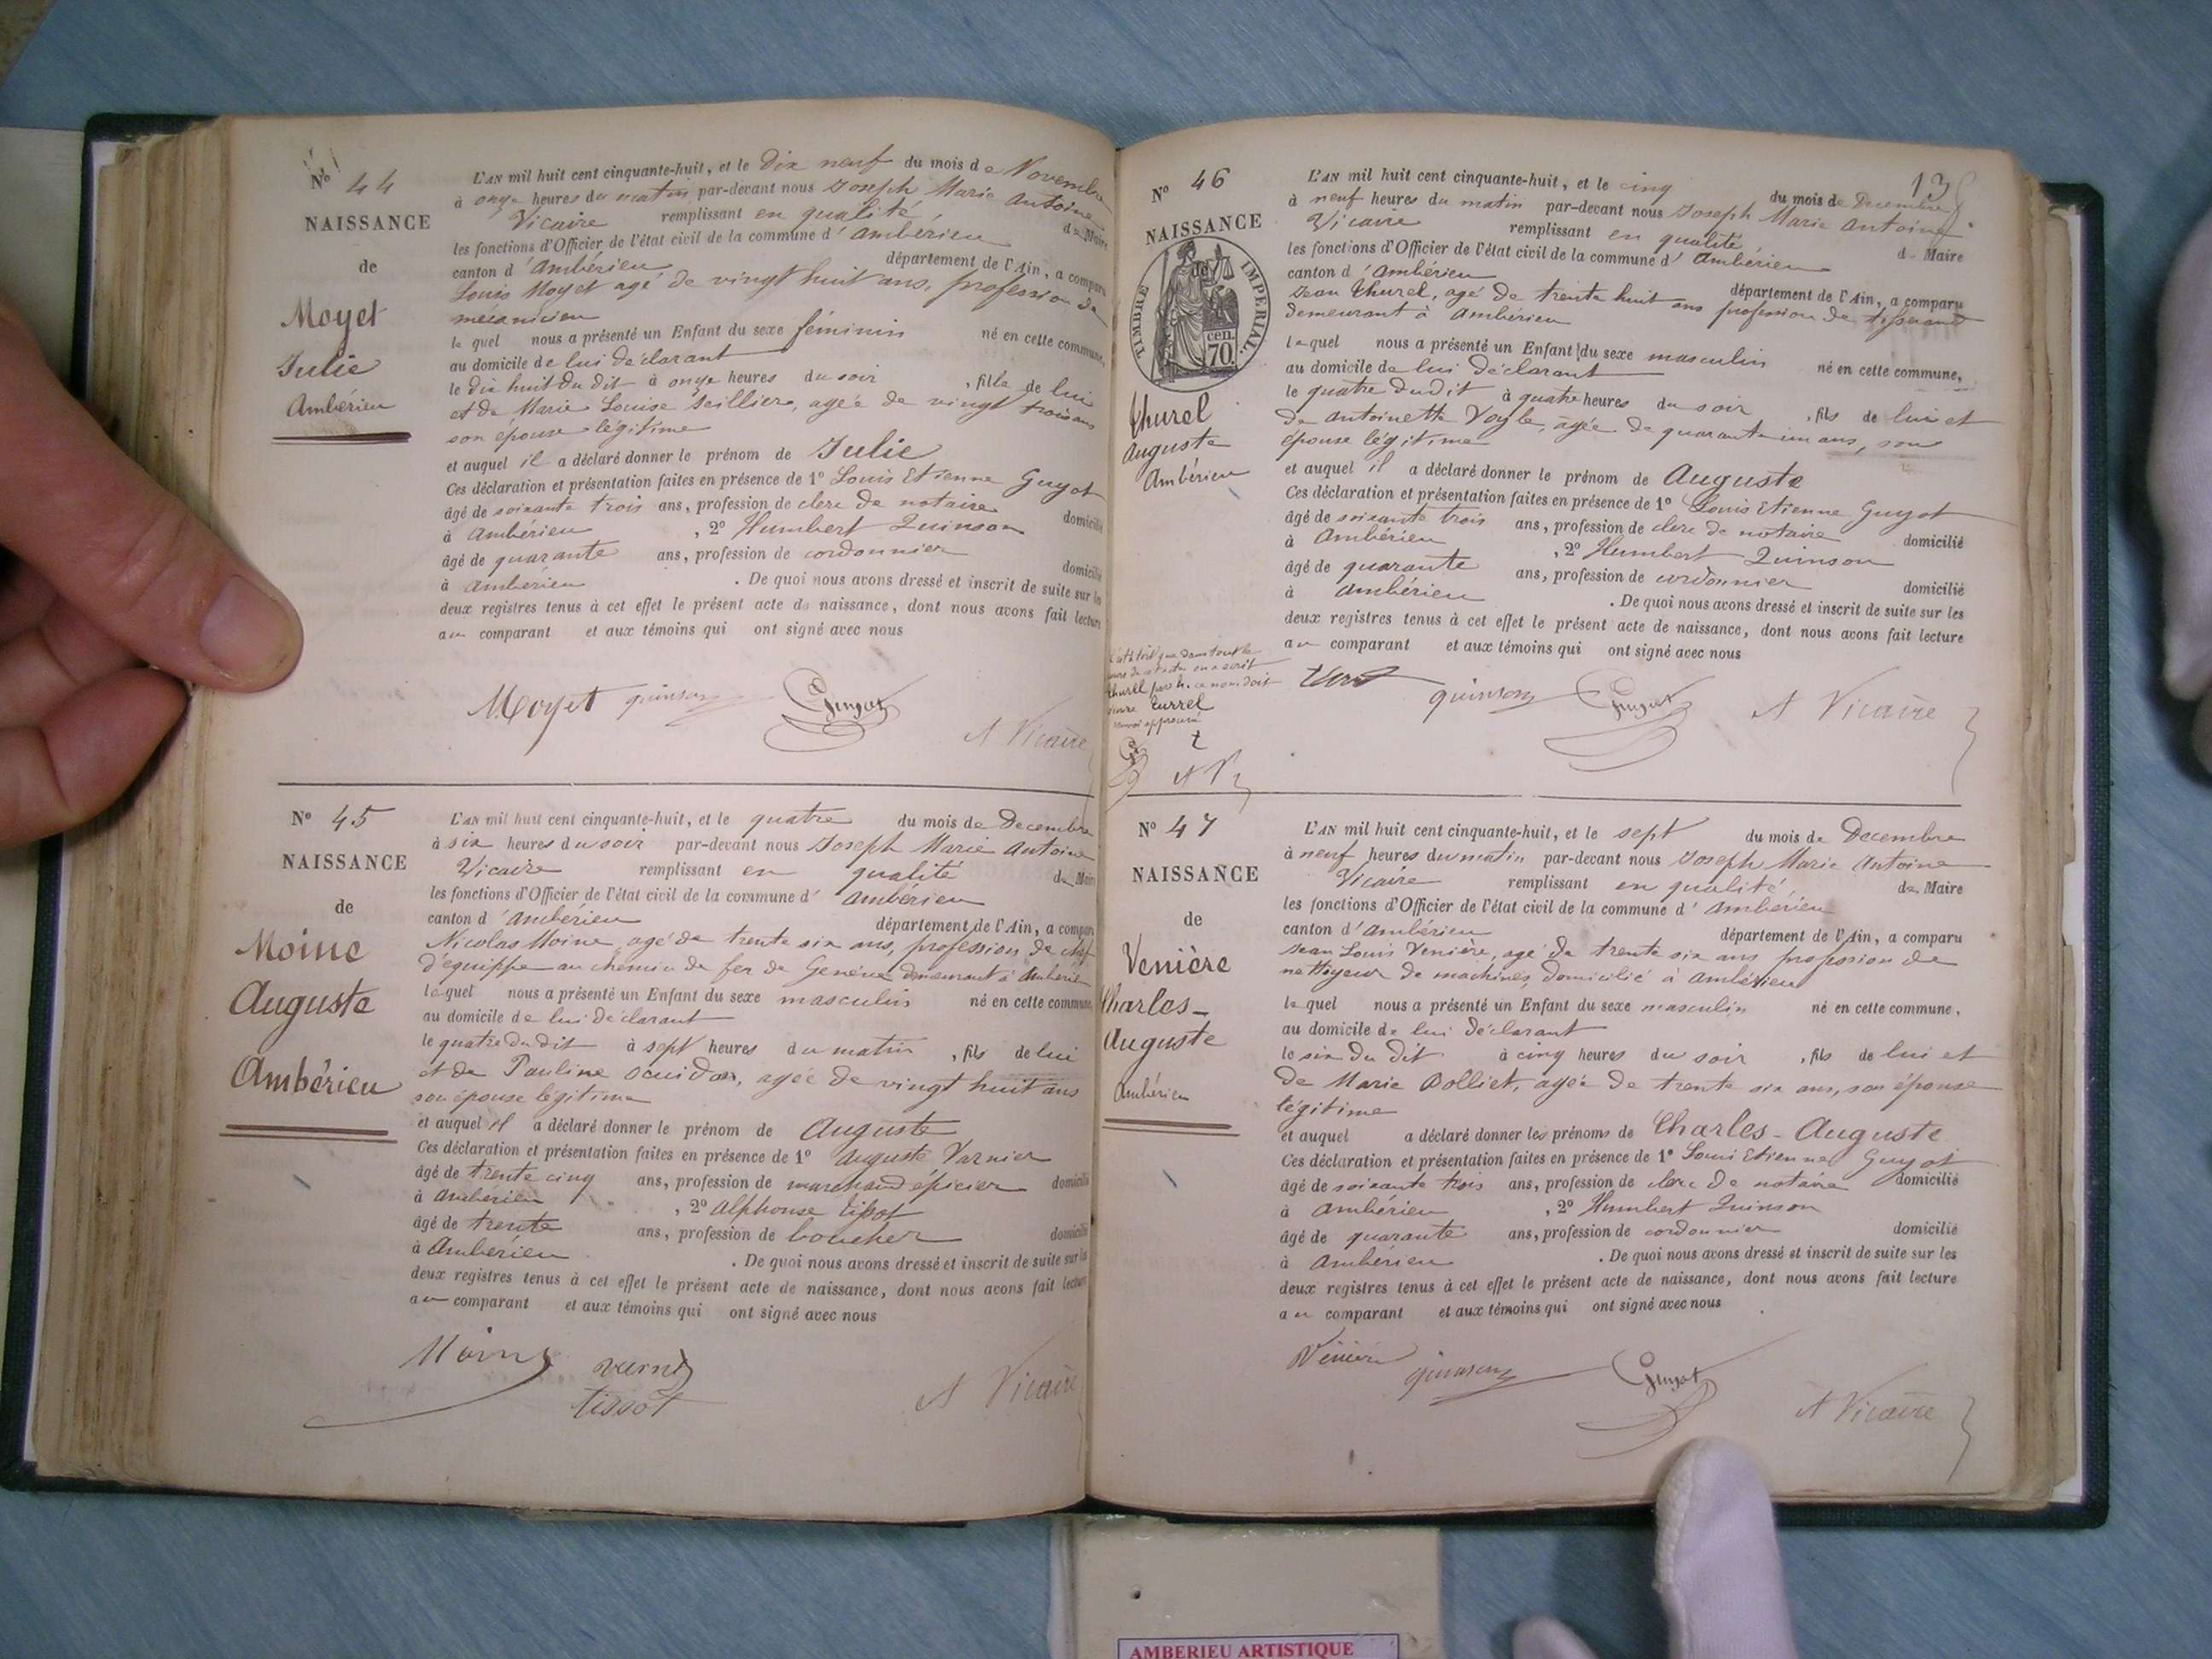 N° 44
NAISSANCE
de
Moyet
Julie
Ambérieu
L'AN mil huit cent cinquante-huit, et le dix neuf du mois de Novembre
à onze heures du matin, par-devant nous Joseph Marie Antoine
Vicaire remplissant en qualité de Maire
les fonctions d'Officier de l'état civil de la commune d'Ambérieu
canton d'Ambérieu département de l'Ain, a comparu
Louis Moyet agé de vingt huit ans, profession de
mecanicien
lequel nous a présenté un Enfant du sexe féminin né en cette commune,
au domicile de lui déclarant
le dix huit du dit à onze heures du soir, fille de lui
et de Marie Louise Seillier, agée de vingt trois ans
son épouse légitime
et auquel il a déclaré donner le prénom de Julie
Ces déclaration et présentation faites en présence de 1° Louis Etienne Guyot
âgé de soixante trois ans, profession de clerc de notaire domicilié
à Ambérieu, 2° Humbert Quinson
âgé de quarante ans, profession de cordonnier domicilié
à Ambérieu. De quoi nous avons dressé et inscrit de suite sur les
deux registres tenus à cet effet le présent acte de naissance, dont nous avons fait lecture
au comparant et aux témoins qui ont signé avec nous
Moyet quinson Guyot
A Vicaire
N° 45
NAISSANCE
de
Moine
Auguste
Ambérieu
L'AN mil huit cent cinquante-huit, et le quatre du mois de Decembre
à six heures du soir par-devant nous Joseph Marie Antoine
Vicaire remplissant en qualité de Maire
les fonctions d'Officier de l'état civil de la commune d'Ambérieu
canton d'Ambérieu département de l'Ain, a comparu
Nicolas Moine, agé de trente six ans, profession de chef
d'équippe au chemin de fer de Genève demeurant à Ambérieu
lequel nous a présenté un Enfant du sexe masculin né en cette commune,
au domicile de lui déclarant
le quatre du dit à sept heures du matin, fils de lui
et de Pauline, agée de vingt huit ans
son épouse légitime
et auquel il a déclaré donner le prénom de Auguste
Ces déclaration et présentation faites en présence de 1° Auguste Varnier
âgé de trente cinq ans, profession de marchand épicier domicilié
à Ambérieu, 2° Alphonse Tissot
âgé de trente ans, profession de boucher domicilié
à Ambérieu. De quoi nous avons dressé et inscrit de suite sur les
deux registres tenus à cet effet le présent acte de naissance, dont nous avons fait lecture
au comparant et aux témoins qui ont signé avec nous
Moine
tissot A Vicaire
135
N° 46
NAISSANCE
de
TIMBRE IMPERIAL.
70 cen.
Thurel
Auguste
Ambérieu
L'AN mil huit cent cinquante-huit, et le cinq du mois de Decembre
à neuf heures du matin par-devant nous Joseph Marie Antoine
Vicaire remplissant en qualité de Maire
les fonctions d'Officier de l'état civil de la commune d'Ambérieu
canton d'Ambérieu département de l'Ain, a comparu
Jean Thurel, agé de trente huit ans profession de tisserand
demeurant à Ambérieu
lequel nous a présenté un Enfant du sexe masculin né en cette commune,
au domicile de lui déclarant
le quatre du dit à quatre heures du soir, fils de lui et
de Antoinette, agée de quarante un ans, son
épouse légitime
et auquel il a déclaré donner le prénom de Auguste
Ces déclaration et présentation faites en présence de 1° Louis Etienne Guyot
âgé de soixante trois ans, profession de clerc de notaire domicilié
à Ambérieu, 2° Humbert Quinson
âgé de quarante ans, profession de cordonnier domicilié
à Ambérieu. De quoi nous avons dressé et inscrit de suite sur les
deux registres tenus à cet effet le présent acte de naissance, dont nous avons fait lecture
au comparant et aux témoins qui ont signé avec nous
que dans tout le
on a écrit
Thurel par h. ce nom doit
Turrel
approuvé
quinson Guyot A Vicaire
N° 47
NAISSANCE
de
Venière
Charles-
Auguste
Ambérieu
L'AN mil huit cent cinquante-huit, et le sept du mois de Decembre
à neuf heures du matin par-devant nous Joseph Marie Antoine
Vicaire remplissant en qualité de Maire
les fonctions d'Officier de l'état civil de la commune d'Ambérieu
canton d'Ambérieu département de l'Ain, a comparu
Jean Louis Venière, agé de trente six ans profession de
nettoyeur de machines, domicilié à Ambérieu
lequel nous a présenté un Enfant du sexe masculin né en cette commune,
au domicile de lui déclarant
le six du dit à cinq heures du soir, fils de lui et
de Marie Bolliet, agée de trente six ans, son épouse
légitime
et auquel a déclaré donner les prénoms de Charles-Auguste
Ces déclaration et présentation faites en présence de 1° Louis Etienne Guyot
âgé de soixante trois ans, profession de clerc de notaire domicilié
à Ambérieu, 2° Humbert Quinson
âgé de quarante ans, profession de cordonnier domicilié
à Ambérieu. De quoi nous avons dressé et inscrit de suite sur les
deux registres tenus à cet effet le présent acte de naissance, dont nous avons fait lecture
au comparant et aux témoins qui ont signé avec nous
Venière quinson Guyot A Vicaire
AMBERIEU ARTISTIQUE